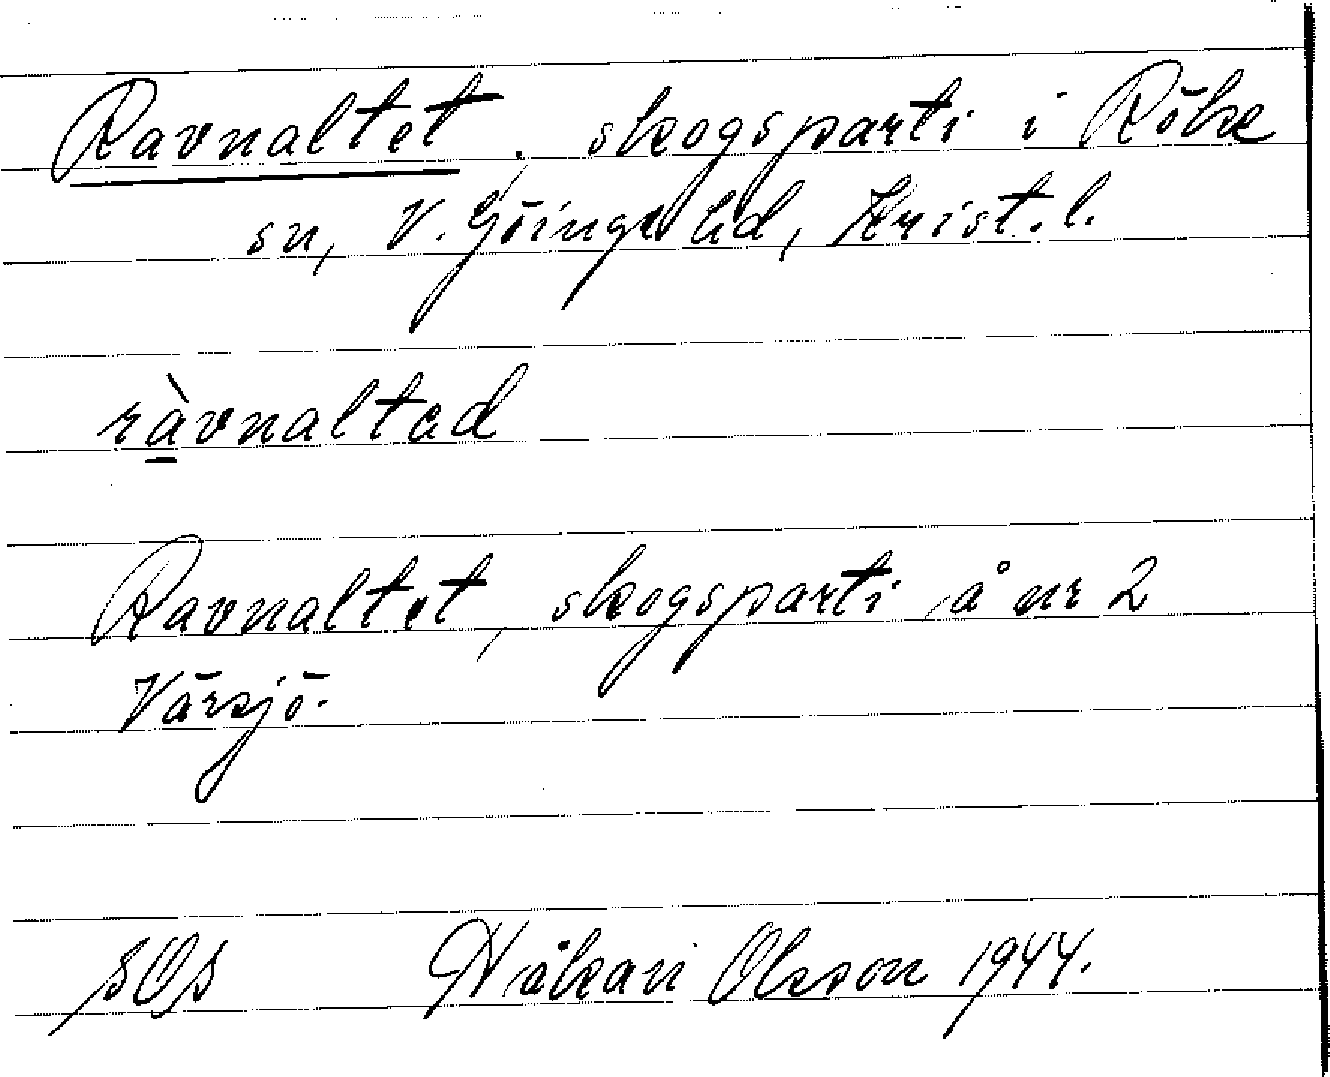 Ravnaltet, skogsparti i Röke
sn, V. Göinge hd, Krist. l.
ràvnaltad
Ravnaltet, skogsparti å nr 2
Värsjö.
SOS Håkan Olsson 1944.